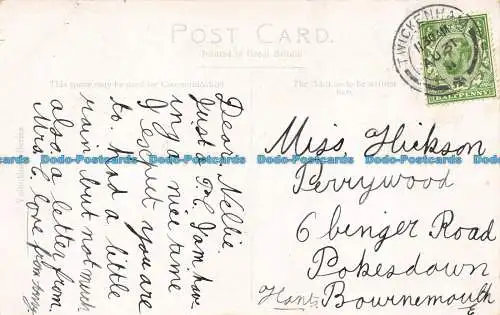 POST CARD.
Printed in Great Britain
This space may be used for Communication
The Address to be written
here.
TWICKENHAM
HALFPENNY
Dear Nellie.
Just a P.C. I am hav-
ing a nice time
I expect you are
to. Had a little
rain but not much
also a letter from
Mrs E, love from
Miss Hickson
Perrywood
6 binger Road
Pokesdown
Hants Bournemouth
Dodo-Postcards Dodo-Postcards Dodo-Postcards Dodo-Postcards Dodo-Postcards